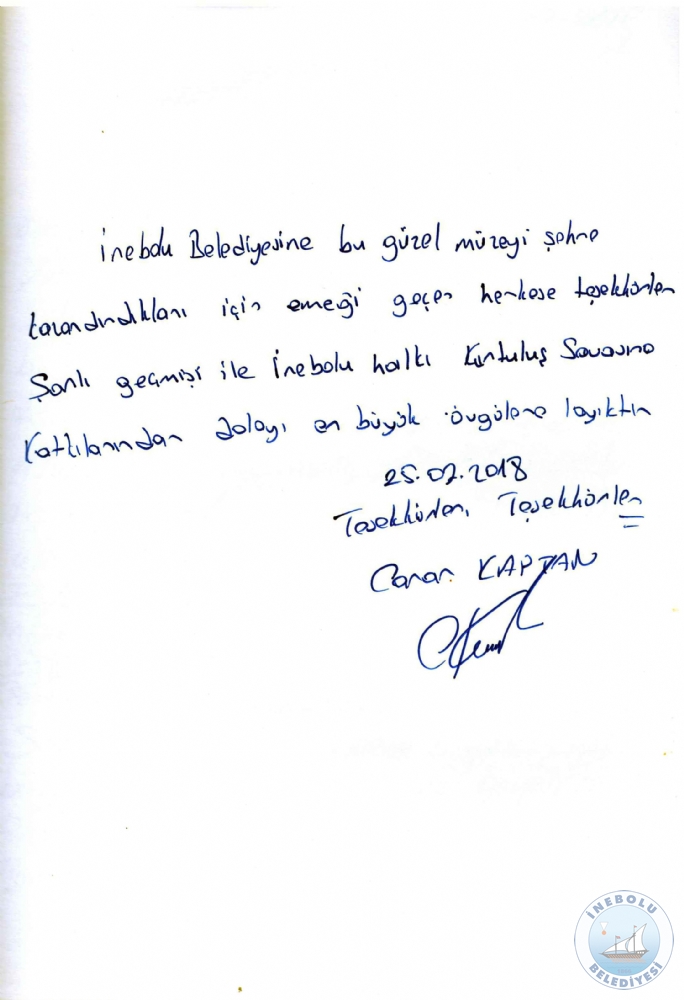 İnebolu Belediyesine bu güzel müzeyi şehre
kazandırdıkları için emeği geçen herkese teşekkürler
Şanlı geçmişi ile İnebolu halkı Kurtuluş Savaşına
Katkılarından dolayı en büyük övgülere layıktır
25.02.2018
Teşekkürler, Teşekkürler
Canan KAPTAN
İNEBOLU
BELEDİYESİ